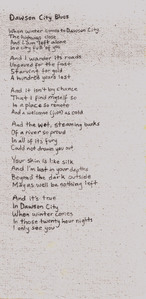 Dawson City Blues
When winter comes to Dawson City
The highways close
And I am left alone
In a city full of you
And I wander its roads
Unpaved for the frost
Starving for gold
A hundred years last
And it isn't by chance
That I find myself so
In a place so remote
And a welcome (just) as cold
And the wet, steaming banks
Of a river so proud
In all of its fury
Could not drown you out
Your skin is like silk
And I'm lost in your
Beyond the dark outside
May as well be nothing left
And it's true
In Dawson City
When winter comes
In those twenty hour nights
I only see you